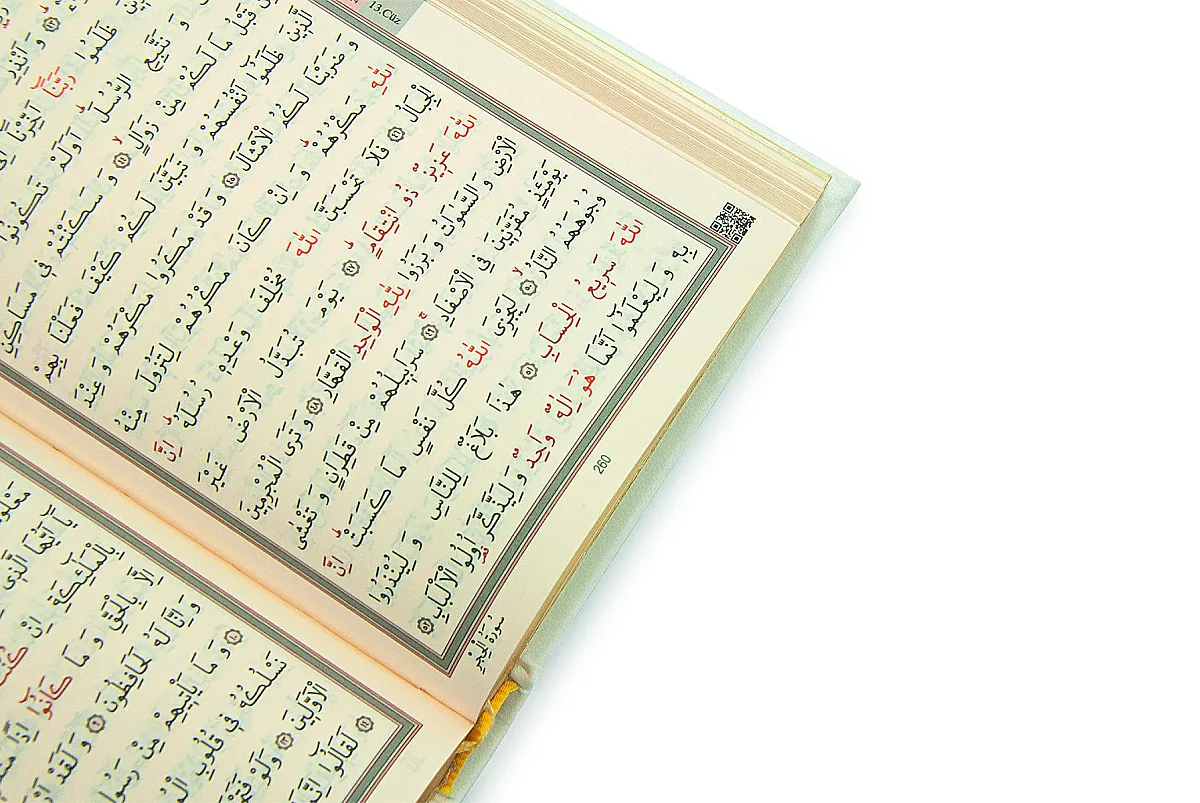 13.Cüz
وَ اَنْذِرِ
ظَلَمُوا رَبَّنَٓا اَخِّرْنَٓا
وَ نَتَّبِعِ الرُّسُلَ اَوَلَمْ تَكُونُٓوا
قَبْلُ مَا لَكُمْ مِنْ زَوَالٍ ﴿٤٤﴾ وَ سَكَنْتُمْ ف۪ي مَسَاكِنِ
الَّذ۪ينَ ظَلَمُٓوا اَنْفُسَهُمْ وَ تَبَيَّنَ لَكُمْ كَيْفَ فَعَلْنَا بِهِمْ
وَ ضَرَبْنَا لَكُمُ الْاَمْثَالَ ﴿٤٥﴾ وَ قَدْ مَكَرُوا مَكْرَهُمْ وَ عِنْدَ
اللّٰهِ مَكْرُهُمْ وَ اِنْ كَانَ مَكْرُهُمْ لِتَزُولَ مِنْهُ
الْجِبَالُ ﴿٤٦﴾ فَلَا تَحْسَبَنَّ اللّٰهَ مُخْلِفَ وَعْدِه۪ رُسُلَهُ اِنَّ
اللّٰهَ عَز۪يزٌ ذُو انْتِقَامٍ ﴿٤٧﴾ يَوْمَ تُبَدَّلُ الْاَرْضُ غَيْرَ
الْاَرْضِ وَ السَّمٰوَاتُ وَ بَرَزُوا لِلّٰهِ الْوَاحِدِ الْقَهَّارِ ﴿٤٨﴾ وَ تَرَى الْمُجْرِم۪ينَ
يَوْمَئِذٍ مُقَرَّن۪ينَ فِي الْاَصْفَادِ ﴿٤٩﴾ سَرَاب۪يلُهُمْ مِنْ قَطِرَانٍ وَ تَغْشٰى
وُجُوهَهُمُ النَّارُ ﴿٥٠﴾ لِيَجْزِيَ اللّٰهُ كُلَّ نَفْسٍ مَا كَسَبَتْ اِنَّ
اللّٰهَ سَر۪يعُ الْحِسَابِ ﴿٥١﴾ هٰذَا بَلَاغٌ لِلنَّاسِ وَ لِيُنْذَرُوا
بِه۪ وَ لِيَعْلَمُٓوا اَنَّمَا هُوَ اِلٰهٌ وَاحِدٌ وَ لِيَذَّكَّرَ اُو۬لُوا الْاَلْبَابِ ﴿٥٢﴾
260
سُورَةُ الْحِجْرِ
يَٓا اَيُّهَا الَّذ۪ي
بِالْمَلٰٓئِكَةِ اِنْ
اِلَّا بِالْحَقِّ وَ مَا كَانُٓوا اِذًا
وَ اِنَّا لَهُ لَحَافِظُونَ ﴿٩﴾ وَ لَقَدْ
﴿١٠﴾ وَ مَا يَأْت۪يهِمْ مِنْ
نَسْلُكُهُ ف۪ي قُلُوبِ
الْاَوَّل۪ينَ ﴿١٣﴾ وَلَوْ
﴿١٤﴾ لَقَالُٓوا